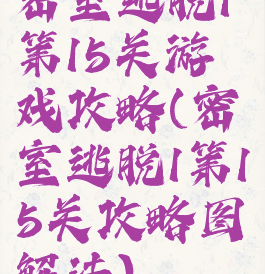 密室逃脱1
第15关游
戏攻略(密
室逃脱1第1
5关攻略图
解法)